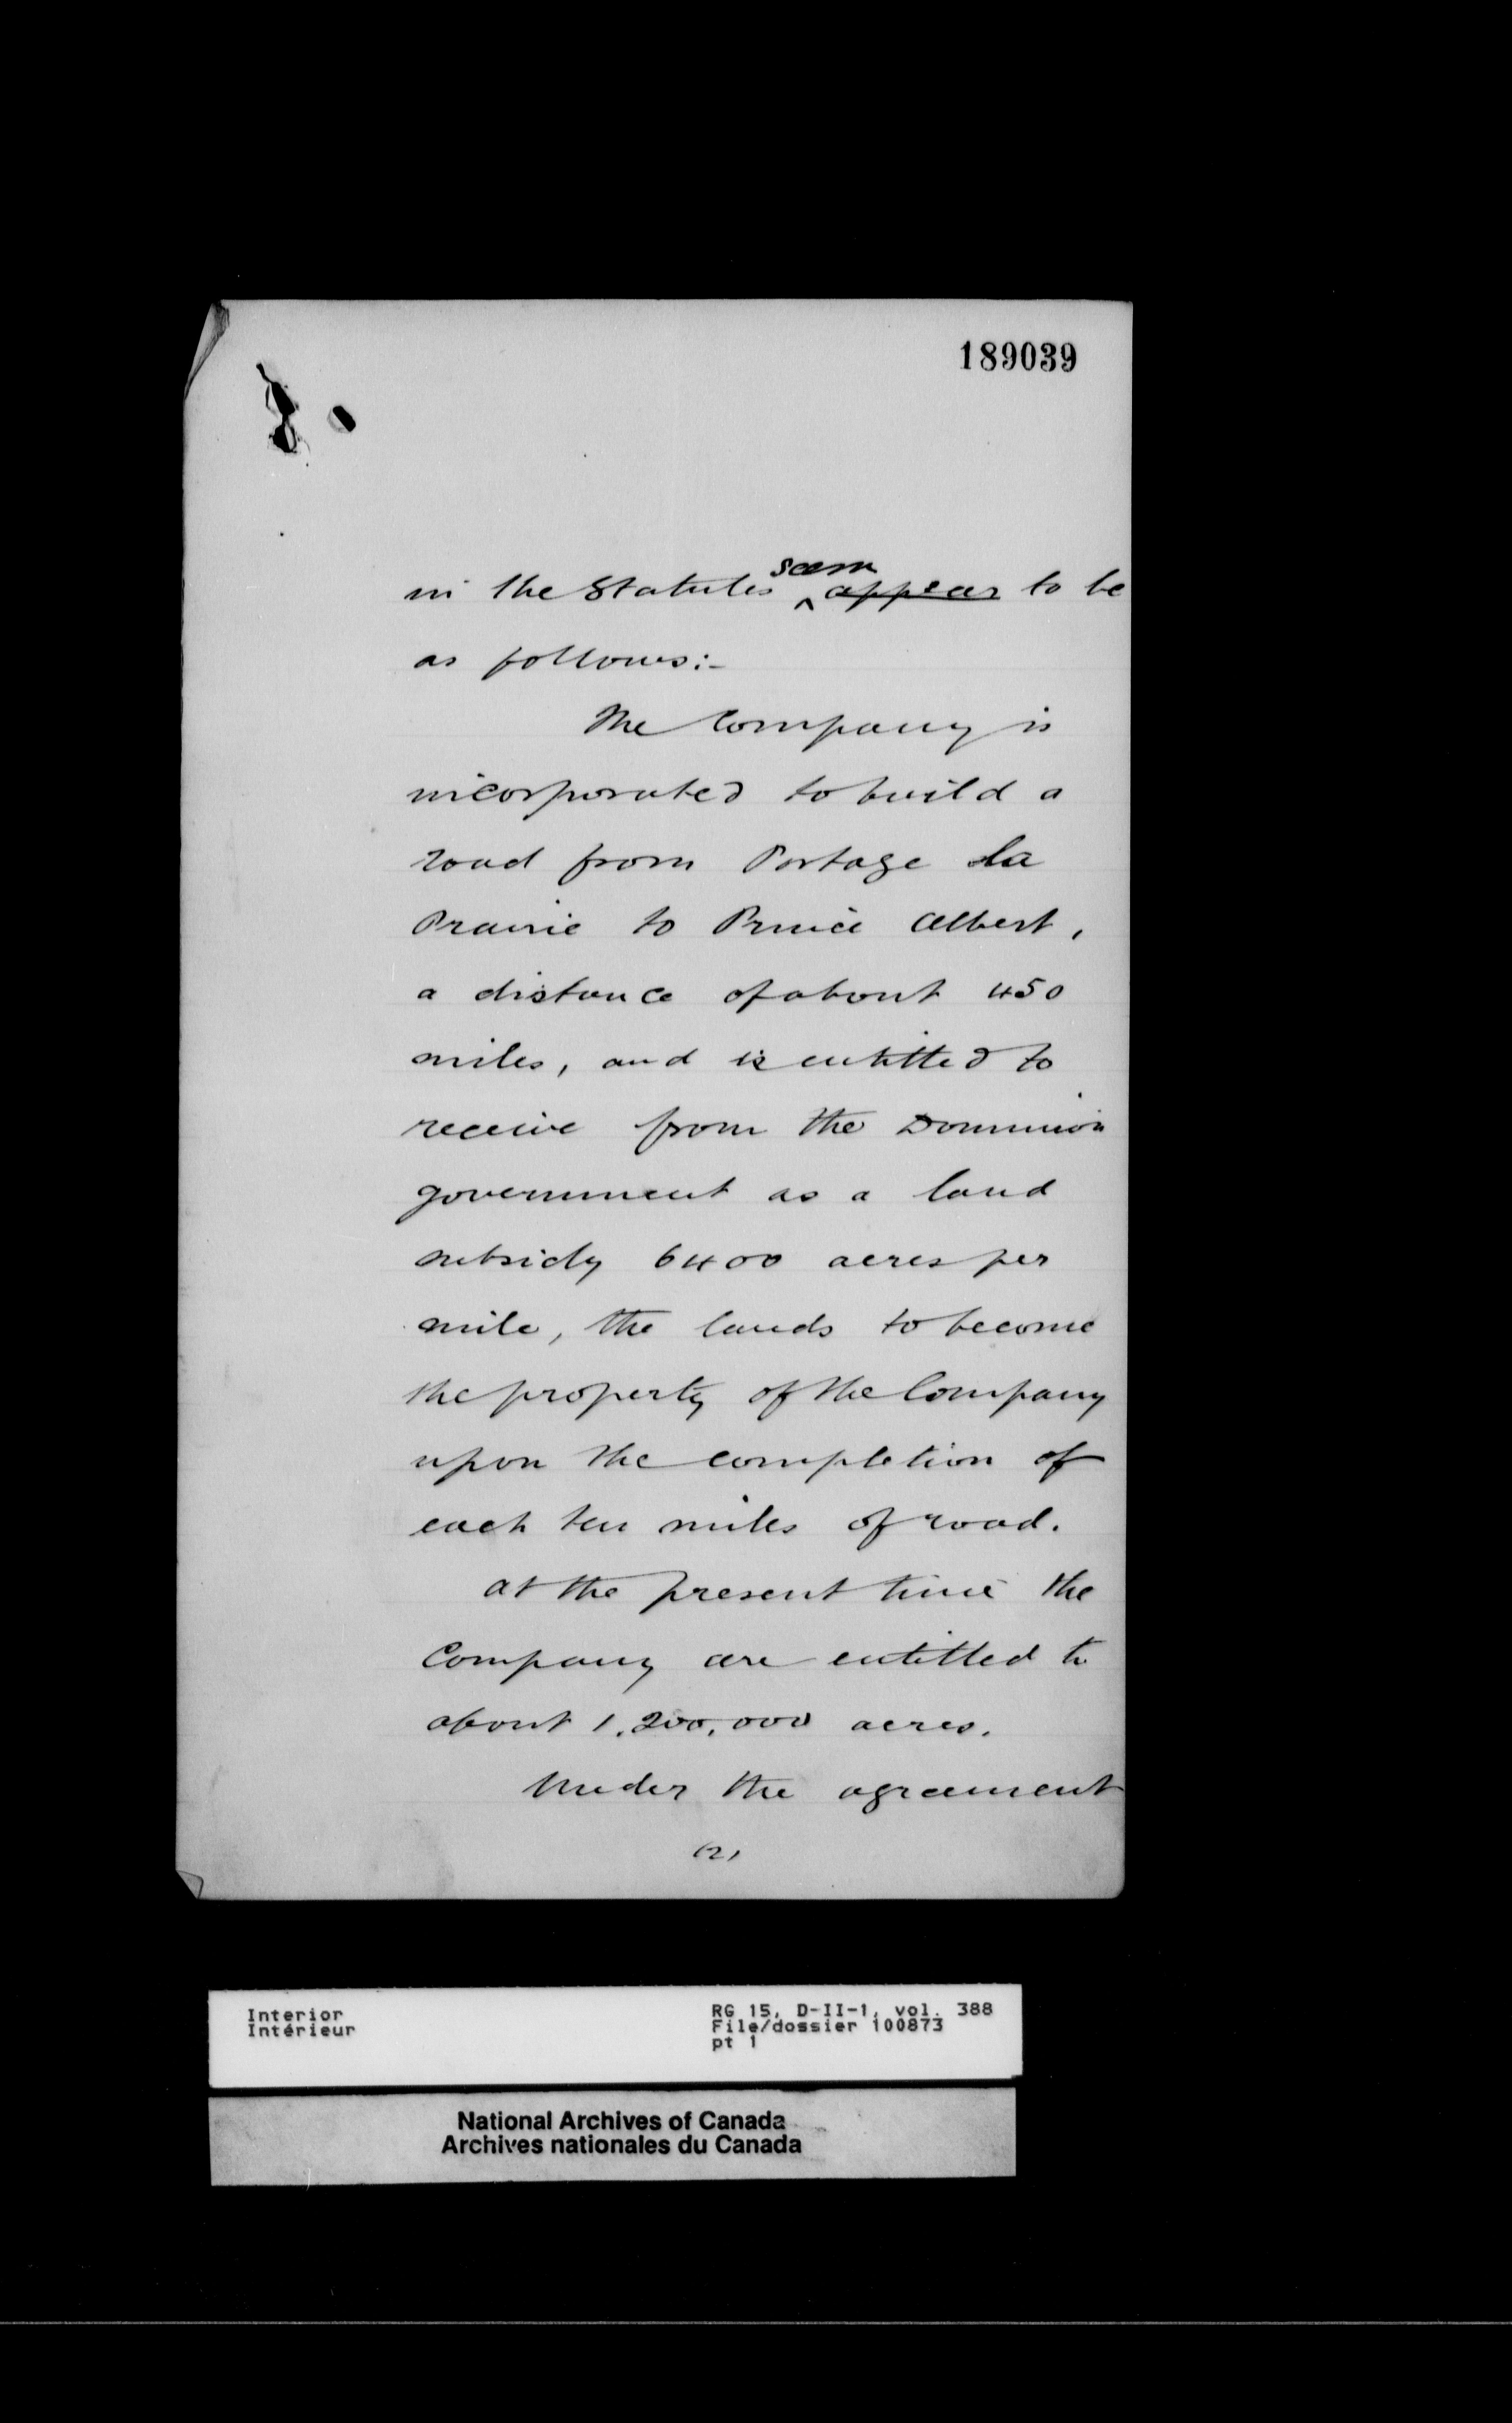 189039
in the Statutes seem appear to be
as follows:-
The Company is
incorporated to build a
road from Portage La
Prairie to Prince Albert,
a distance of about 450
miles, and is entitled to
receive from the Dominion
government as a land
subsidy 6400 acres per
mile, the lands to become
the property of the Company
upon the completion of
each ten miles of road.
At the present time the
Company are entitled to
about 1,200,000 acres.
Under the agreement
(2)
Interior
Intérieur
RG 15, D-II-1, vol. 388
File/dossier 100873
pt 1
National Archives of Canada
Archives nationales du Canada